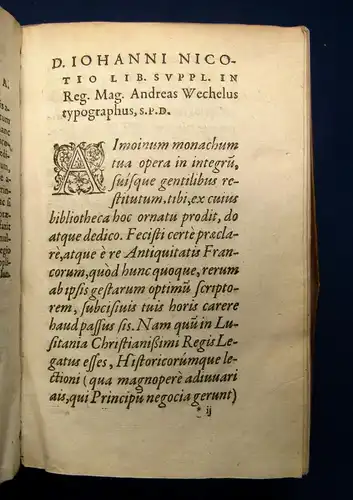 D. IOHANNI NICO-
TIO LIB. SVPPL. IN
Reg. Mag. Andreas Wechelus
typographus, S.P.D.
AImoinum monachum
tua opera in integrũ,
suisque gentilibus re-
stitutum, tibi, ex cuius
bibliotheca hoc ornatu prodit, do
atque dedico. Fecisti certè præcla-
rè, atque è re Antiquitatis Fran-
corum, quòd hunc quoque, rerum
ab ipsis gestarum optimũ scripto-
rem, subcisiuis tuis horis carere
haud passus sis. Nam quũ in Lu-
sitania Christianißimi Regis Le-
gatus esses, Historicorúmque le-
ctioni (qua magnopere adiuuari
ais, qui Principũ negocia gerunt)
* ij